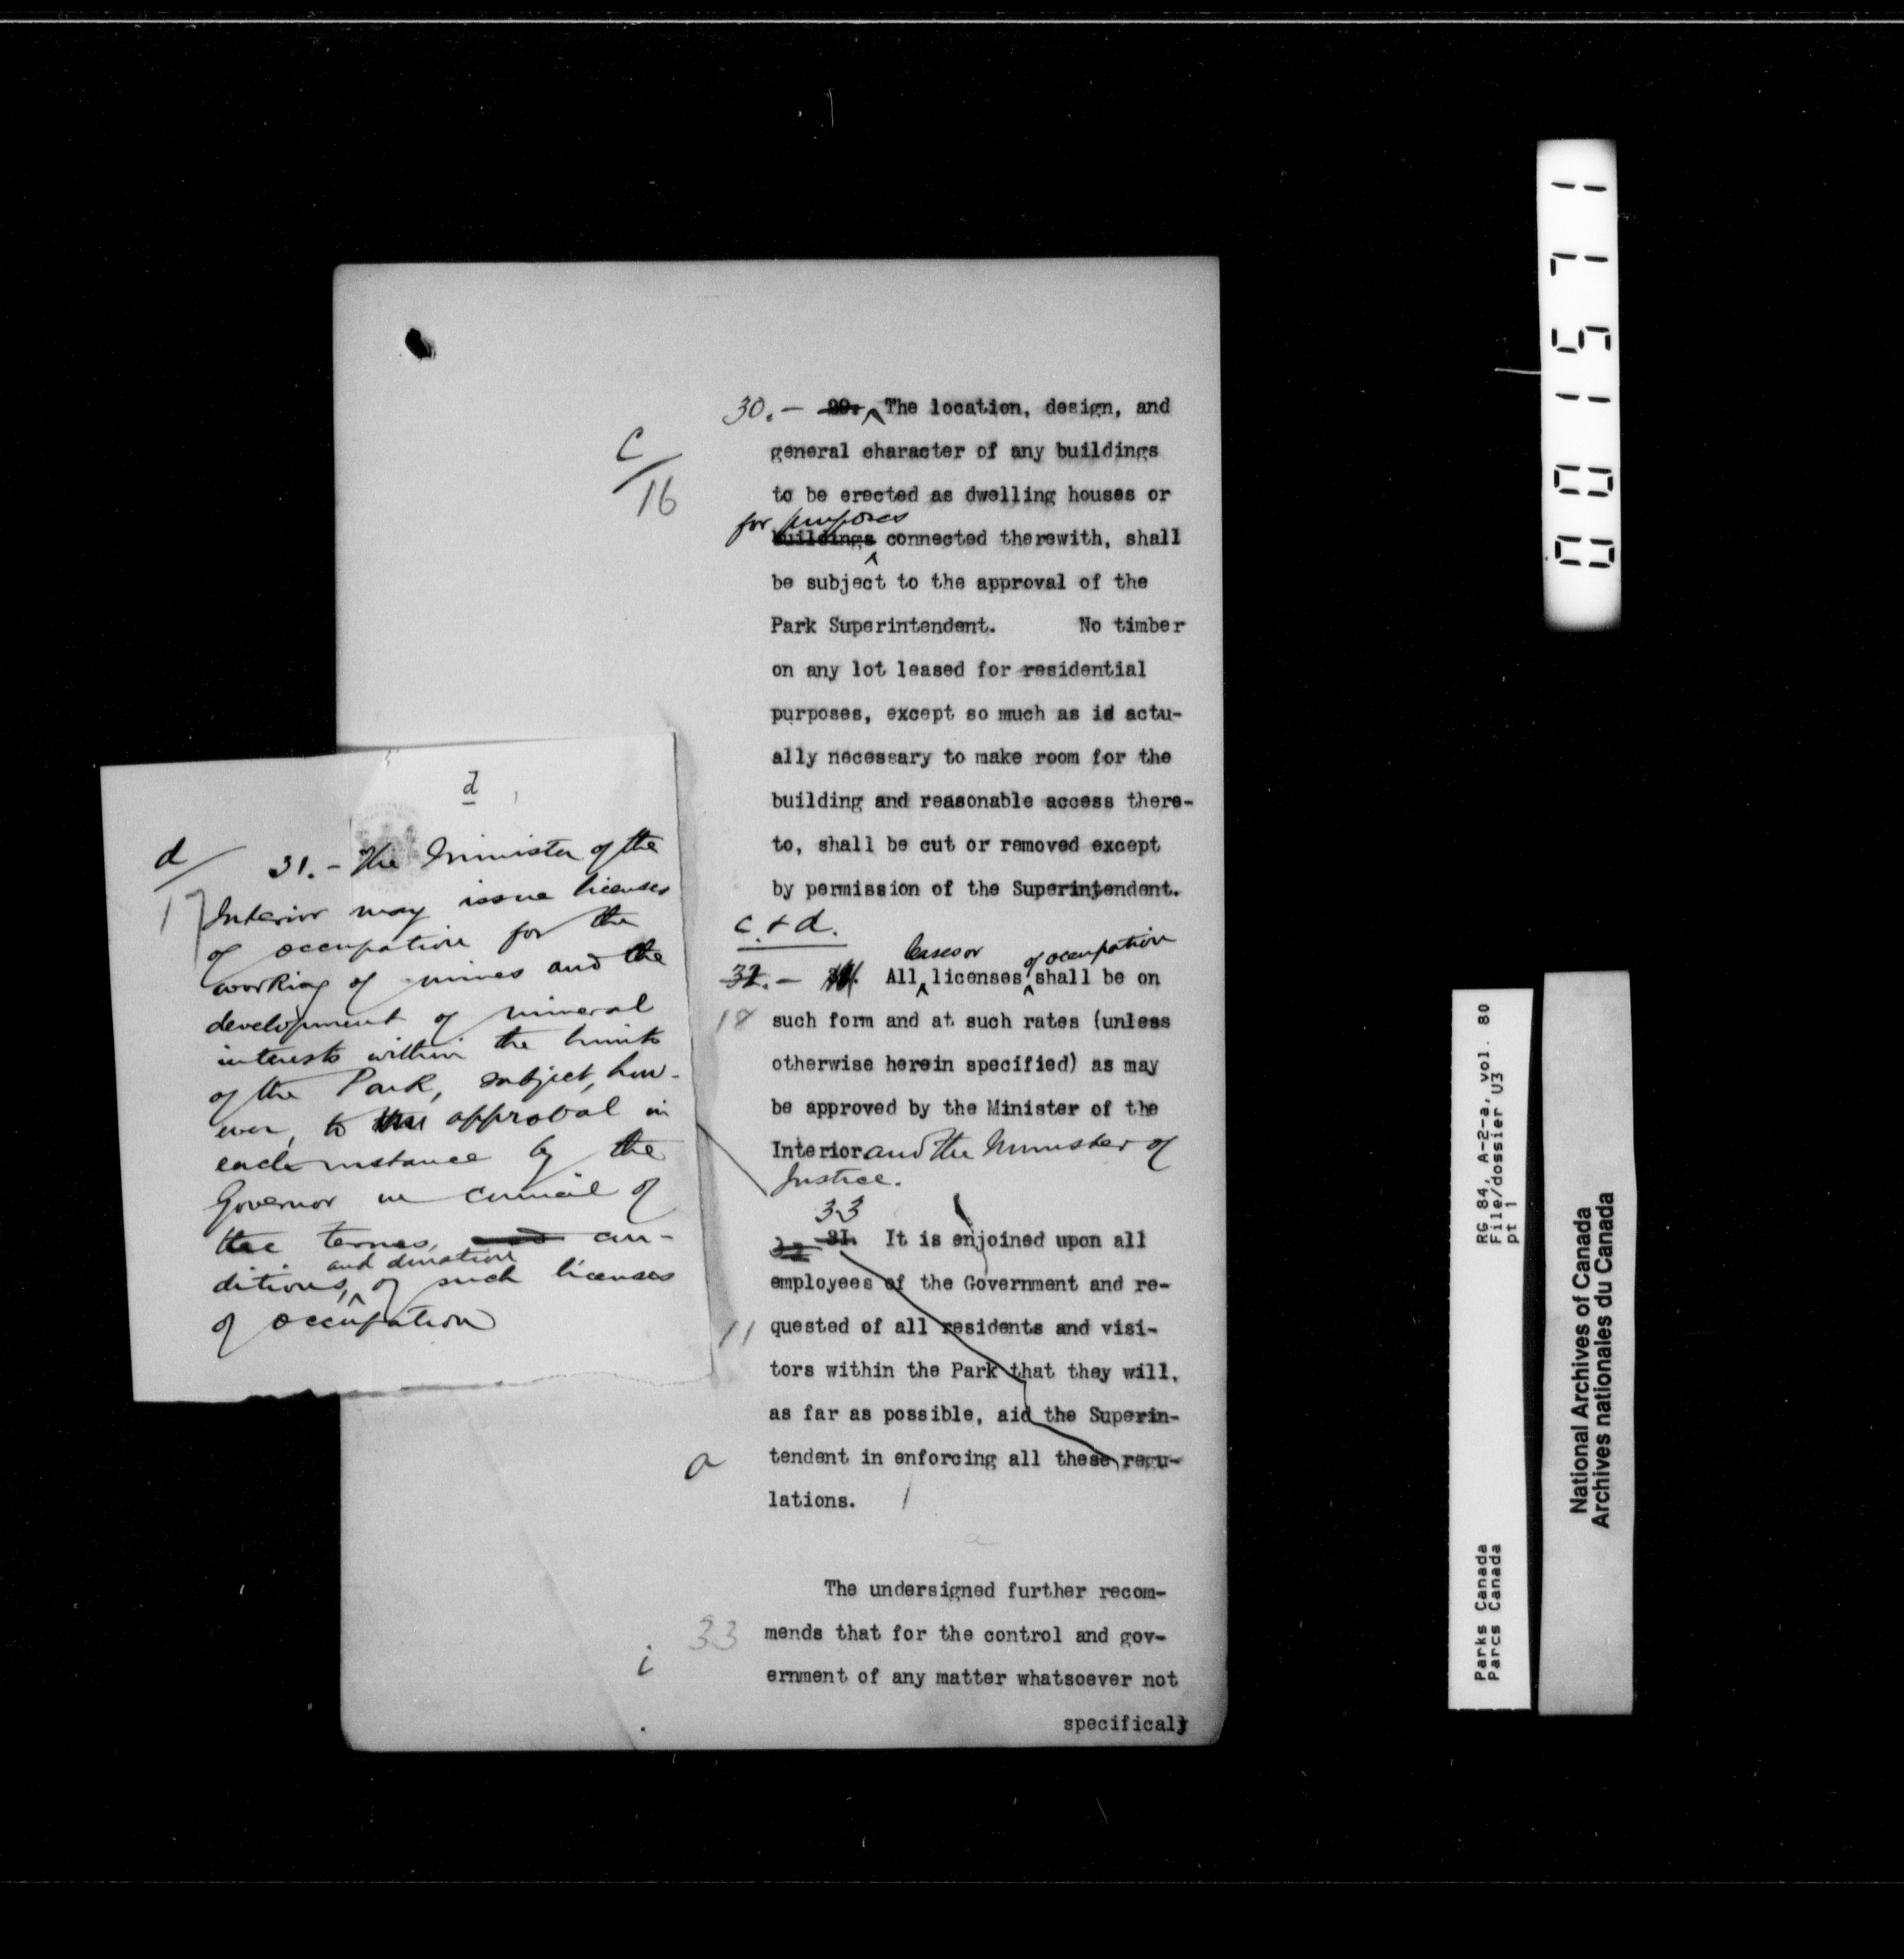 30. — 29. ^ The location, design, and
general character of any buildings
to be erected as dwelling houses or
for purposes
buildings connected therewith, shall
be subject to the approval of the
Park Superintendent. No timber
on any lot leased for residential
purposes, except so much as is actu-
ally necessary to make room for the
building and reasonable access there-
to, shall be cut or removed except
by permission of the Superintendent.
C/16
c. + d.
leases or of occupation
32. — All ^ licenses ^ shall be on
18 such form and at such rates (unless
otherwise herein specified) as may
be approved by the Minister of the
Interior and the Minister of
Justice.
33
32 31. It is enjoined upon all
employees of the Government and re-
11 quested of all residents and visi-
tors within the Park that they will,
as far as possible, aid the Superin-
a tendent in enforcing all these regu-
lations.
The undersigned further recom-
33 mends that for the control and gov-
i ernment of any matter whatsoever not
specificaly
d
d/17
31. – The Minister of the
Interior may issue licenses
of occupation for the
working of mines and the
development of mineral
interests within the limits
of the Park, subject, how-
ever, to the approval in
each instance by the
Governor in Council of
the terms, and con-
and duration
ditions, ^ of such licenses
of occupation
001571
Parks Canada RG 84, A-2-a, vol. 80
Parcs Canada File/dossier U3
pt 1
National Archives of Canada
Archives nationales du Canada